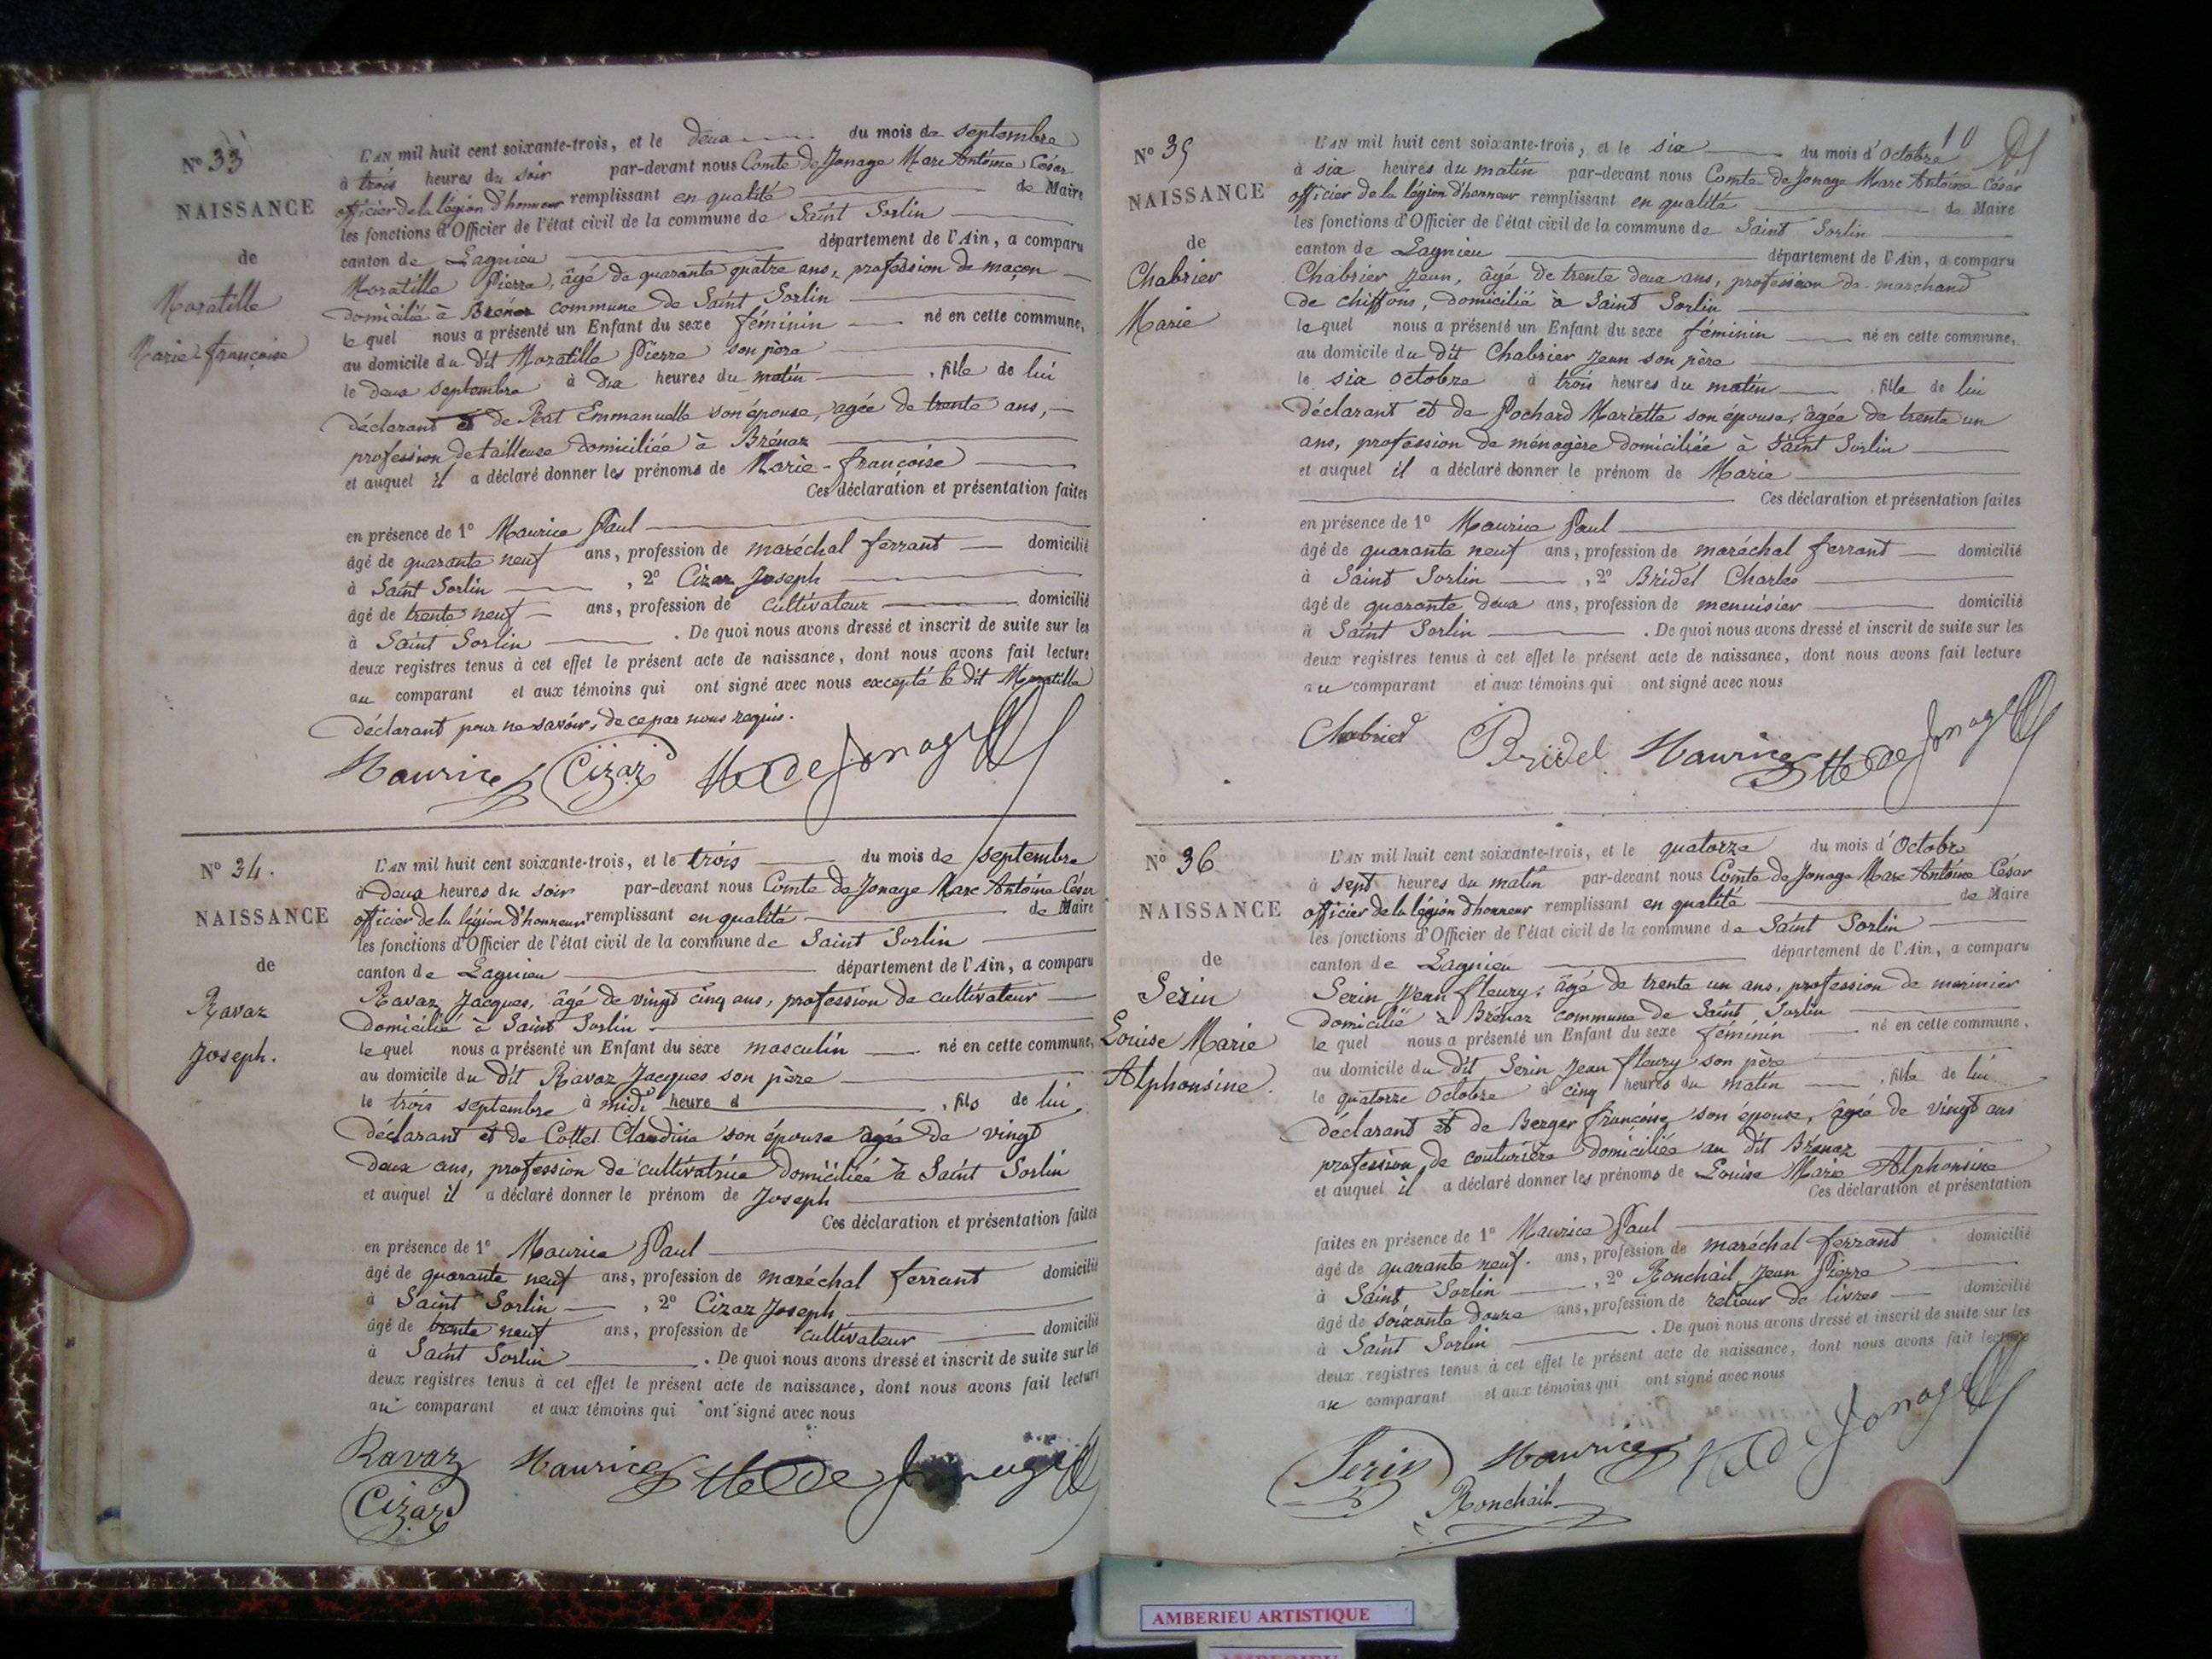 N° 33
NAISSANCE
de
Moratille
Marie-françoise
L'AN mil huit cent soixante-trois, et le deux du mois de septembre
à trois heures du soir par-devant nous Comte de Jonage Marc Antoine César
officier de la légion d'honneur remplissant en qualité de Maire
les fonctions d'Officier de l'état civil de la commune de Saint Sorlin
canton de Lagnieu département de l'Ain, a comparu
Moratille Pierre, âgé de quarante quatre ans, profession de maçon
domicilié à Brénaz commune de Saint Sorlin
le quel nous a présenté un Enfant du sexe féminin né en cette commune,
au domicile du dit Moratille Pierre son père
le deux septembre à dix heures du matin, fille de lui
déclarant et de Rat Emmanuelle son épouse, agée de trente ans,
profession de tailleuse domiciliée à Brénaz
et auquel il a déclaré donner les prénoms de Marie-françoise
Ces déclaration et présentation faites
en présence de 1° Maurice Paul
âgé de quarante neuf ans, profession de maréchal ferrant domicilié
à Saint Sorlin, 2° Cizaz Joseph
âgé de trente neuf ans, profession de cultivateur domicilié
à Saint Sorlin. De quoi nous avons dressé et inscrit de suite sur les
deux registres tenus à cet effet le présent acte de naissance, dont nous avons fait lecture
au comparant et aux témoins qui ont signé avec nous excepté le dit Moratille
déclarant pour ne savoir, de ce par nous requis.
Maurice Cizaz de Jonage
N° 34.
NAISSANCE
de
Ravaz
Joseph.
L'AN mil huit cent soixante-trois, et le trois du mois de septembre
à deux heures du soir par-devant nous Comte de Jonage Marc Antoine César
officier de la légion d'honneur remplissant en qualité de Maire
les fonctions d'Officier de l'état civil de la commune de Saint Sorlin
canton de Lagnieu département de l'Ain, a comparu
Ravaz Jacques, âgé de vingt cinq ans, profession de cultivateur
domicilié à Saint Sorlin
le quel nous a présenté un Enfant du sexe masculin né en cette commune,
au domicile du dit Ravaz Jacques son père
le trois septembre à midi heure d, fils de lui
déclarant et de Collet Claudine son épouse agée de vingt
deux ans, profession de cultivatrice domiciliée à Saint Sorlin
et auquel il a déclaré donner le prénom de Joseph
Ces déclaration et présentation faites
en présence de 1° Maurice Paul
âgé de quarante neuf ans, profession de maréchal ferrant domicilié
à Saint Sorlin, 2° Cizaz Joseph
âgé de trente neuf ans, profession de cultivateur domicilié
à Saint Sorlin. De quoi nous avons dressé et inscrit de suite sur les
deux registres tenus à cet effet le présent acte de naissance, dont nous avons fait lecture
au comparant et aux témoins qui ont signé avec nous
Ravaz Maurice de Jonage
Cizaz
10
N° 35
NAISSANCE
de
Chabrier
Marie
L'AN mil huit cent soixante-trois, et le six du mois d'Octobre
à six heures du matin par-devant nous Comte de Jonage Marc Antoine César
officier de la légion d'honneur remplissant en qualité de Maire
les fonctions d'Officier de l'état civil de la commune de Saint Sorlin
canton de Lagnieu département de l'Ain, a comparu
Chabrier Jean, âgé de trente deux ans, profession de marchand
de chiffons, domicilié à Saint Sorlin
le quel nous a présenté un Enfant du sexe féminin né en cette commune,
au domicile du dit Chabrier Jean son père
le six octobre à trois heures du matin, fille de lui
déclarant et de Pochard Mariette son épouse, âgée de trente un
ans, profession de ménagère domiciliée à Saint Sorlin
et auquel il a déclaré donner le prénom de Marie
Ces déclaration et présentation faites
en présence de 1° Maurice Paul
âgé de quarante neuf ans, profession de maréchal ferrant domicilié
à Saint Sorlin, 2° Bridel Charles
âgé de quarante deux ans, profession de menuisier domicilié
à Saint Sorlin. De quoi nous avons dressé et inscrit de suite sur les
deux registres tenus à cet effet le présent acte de naissance, dont nous avons fait lecture
au comparant et aux témoins qui ont signé avec nous
Chabrier Bridel Maurice de Jonage
N° 36
NAISSANCE
de
Serin
Louise Marie
Alphonsine.
L'AN mil huit cent soixante-trois, et le quatorze du mois d'Octobre
à sept heures du matin par-devant nous Comte de Jonage Marc Antoine César
officier de la légion d'honneur remplissant en qualité de Maire
les fonctions d'Officier de l'état civil de la commune de Saint Sorlin
canton de Lagnieu département de l'Ain, a comparu
Serin Jean fleury, âgé de trente un ans, profession de marinier
domicilié à Brénaz commune de Saint Sorlin
le quel nous a présenté un Enfant du sexe féminin né en cette commune,
au domicile du dit Serin Jean fleury son père
le quatorze Octobre à cinq heures du matin, fille de lui
déclarant et de Berger françoise son épouse, âgée de vingt ans
profession de couturière domiciliée au dit Brénaz
et auquel il a déclaré donner les prénoms de Louise Marie Alphonsine
Ces déclaration et présentation
faites en présence de 1° Maurice Paul
âgé de quarante neuf. ans, profession de maréchal ferrant domicilié
à Saint Sorlin, 2° Ronchail Jean Pierre
âgé de soixante douze ans, profession de relieur de livres domicilié
à Saint Sorlin. De quoi nous avons dressé et inscrit de suite sur les
deux registres tenus à cet effet le présent acte de naissance, dont nous avons fait lecture
au comparant et aux témoins qui ont signé avec nous
Serin Maurice de Jonage
Ronchail
AMBERIEU ARTISTIQUE
AMBERIEU